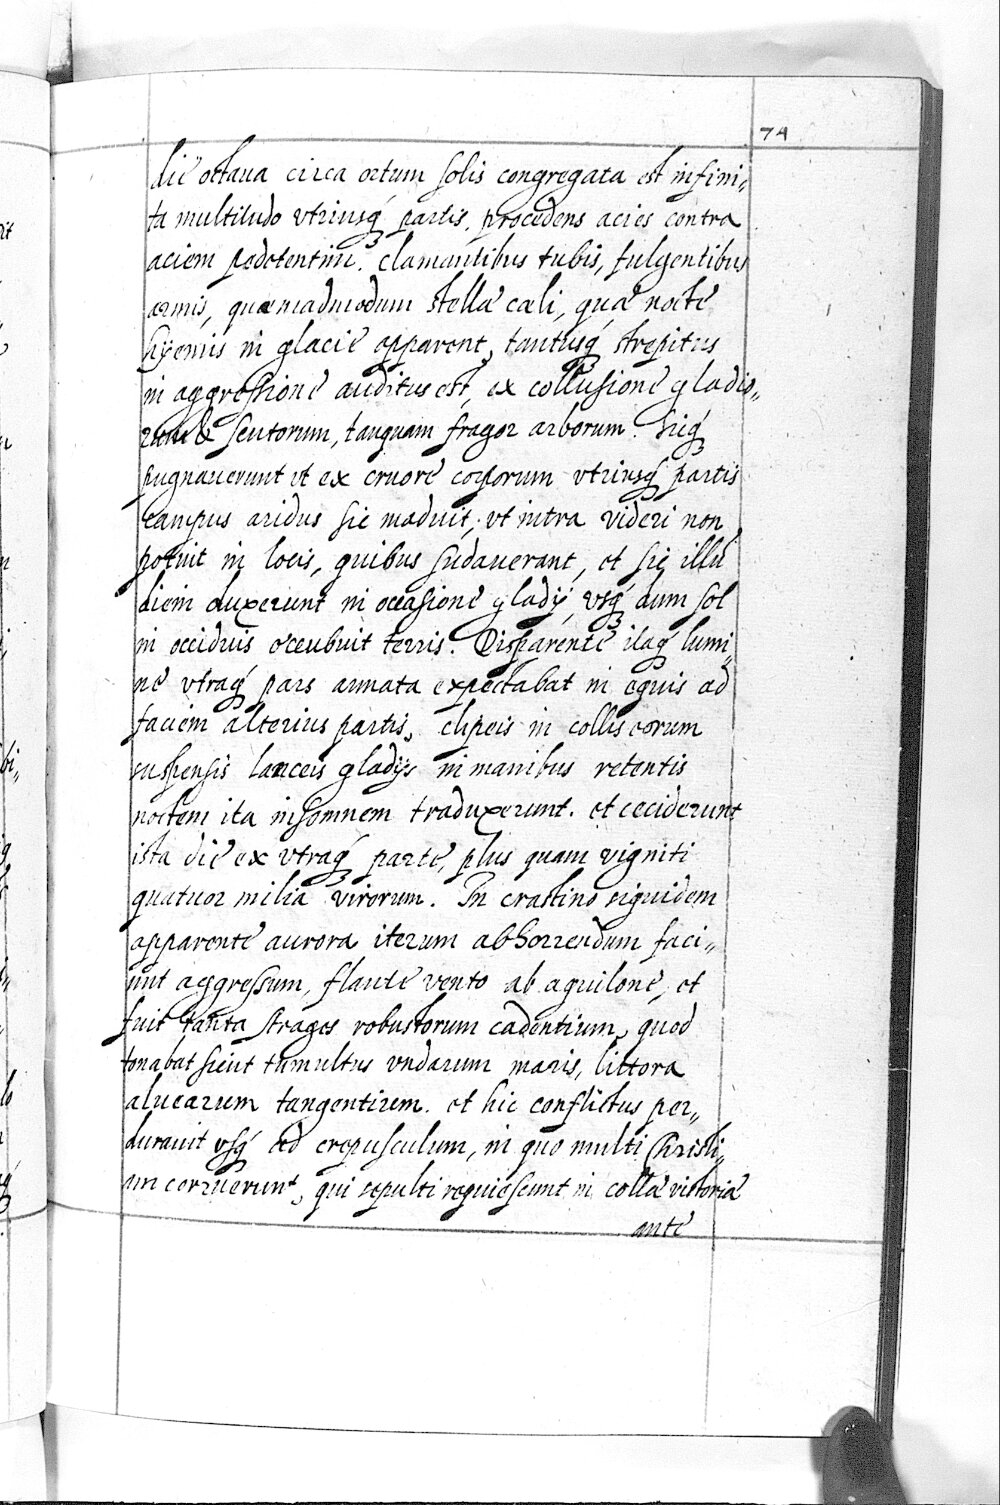 74
die octaua circa ortum solis congregata est infini„
ta multitudo vtriusq́ partis. procedens acies contra
aciem pedetentim. clamantibus tubis, fulgentibus
armis, quæmadmodum stellæ cæli, quæ nocte
hyemis in glacie apparent, tantusq́ strepitus
in aggressione auditus est, ex collusione gladio„
rum & scutorum, tanquam fragor arborum. sicq́
pugnauerunt vt ex cruore corporum vtriusq́ partis
campus aridus sic maduit, vt intra videri non
potuit in locis, quibus sudauerant, et sic illū
diem duxerunt in occasione gladij vsq́ dum sol
in occiduis occubuit terris. Disparente itaq́ lumi„
ne vtraq́ pars armata expectabat in equis ad
faciem alterius partis, clipeis in collis eorum
suspensis lanceis gladijs in manibus retentis
noctem ita insomnem traduxerunt. et ceciderunt
ista die ex vtraq́ parte, plus quam vigniti
quatuor milia virorum. In crastino siquidem
apparente aurora iterum abhorrendum faci„
unt aggressum, flante vento ab aquilone, et
fuit tanta strages robustorum cadentium, quod
tonabat sicut tumultus vndarum maris, littora
aluearum tangentirem. et hic conflictus per„
durauit vsq́ ad crepusculum, in quo multi Christi„
ani corruerunt, qui sepulti requiescunt in colla victoria
ante